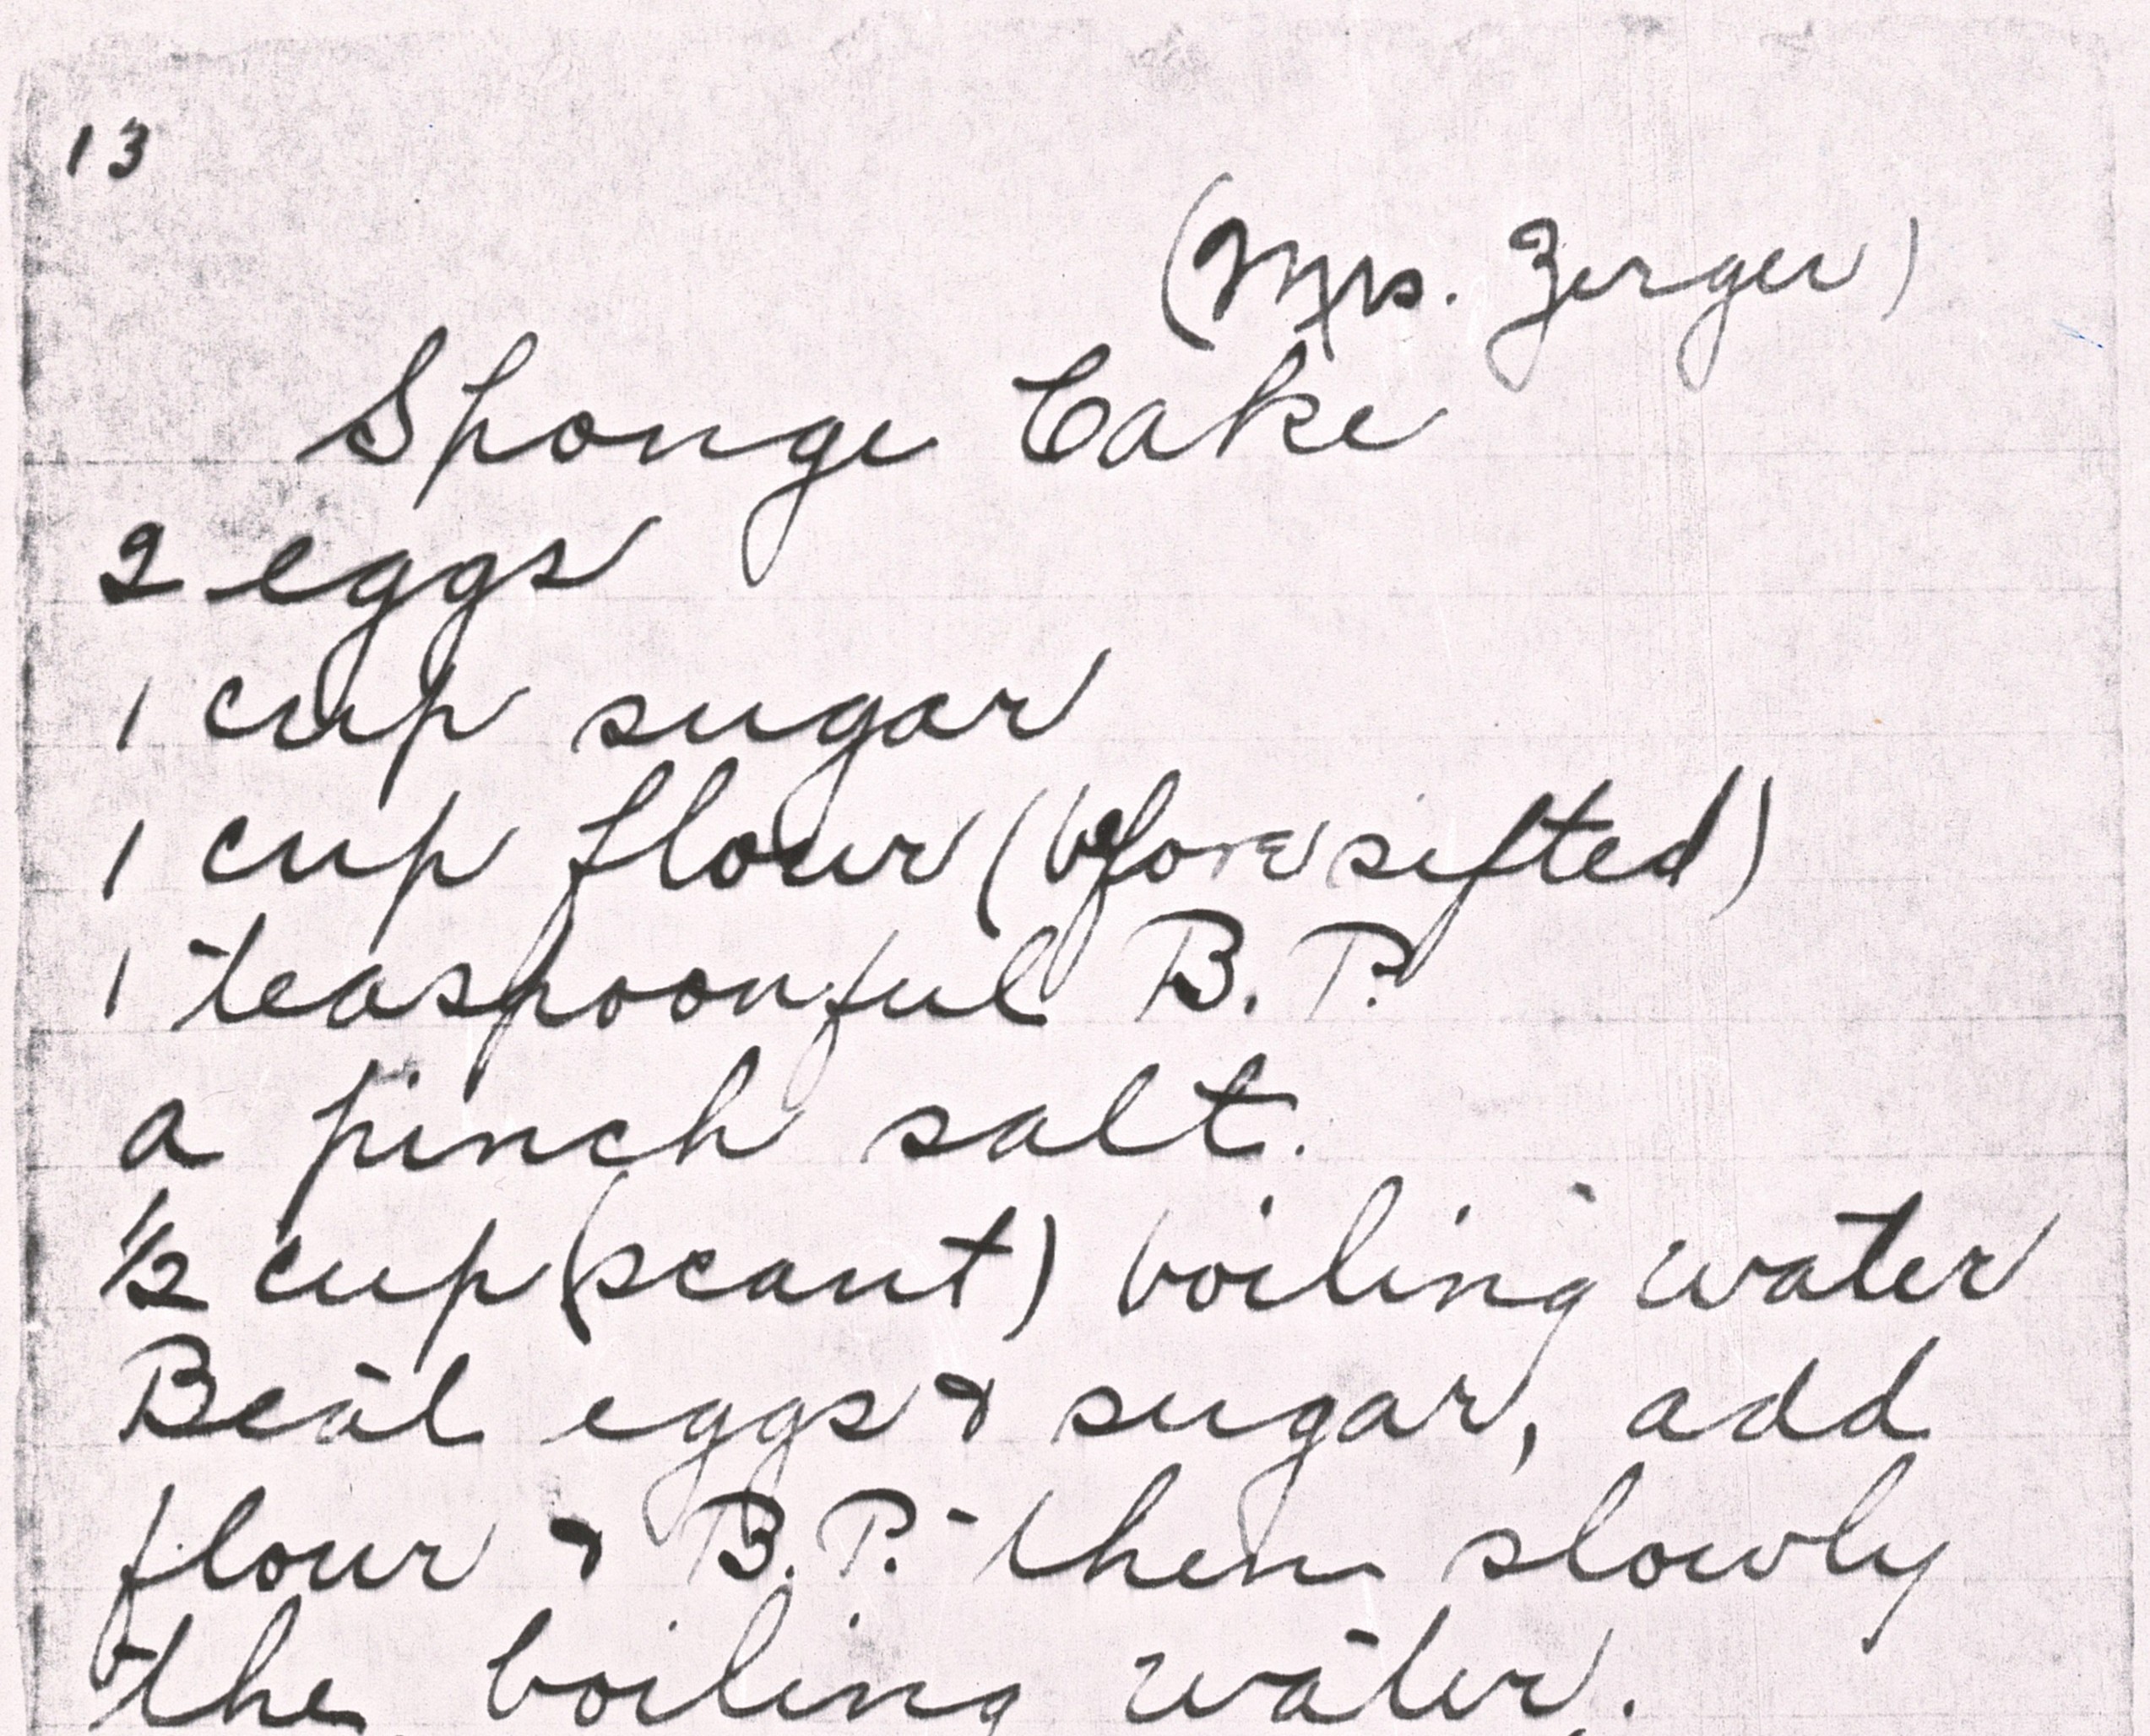 13
(Mrs. Zerger)
Sponge Cake
2 eggs
1 cup sugar
1 cup flour (before sifted)
1 teaspoonful B. P.
a pinch salt.
1/2 cup (scant) boiling water
Beat eggs & sugar, add
flour & B. P. then slowly
the boiling water.